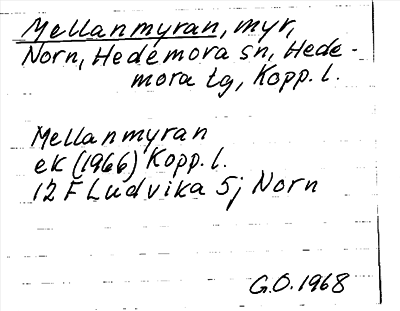 Mellanmyran, myr,
Norn, Hedemora sn, Hede-
mora tg, Kopp. l.
Mellanmyran
ek (1966) Kopp. l.
12 F Ludvika 5j Norn
G.O. 1968